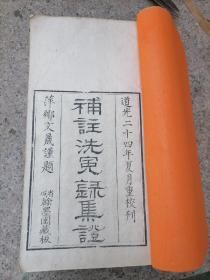 道光二十四年夏月重校刊
補註洗冤錄集證
萍鄉文晟謹題
翰墨園藏板